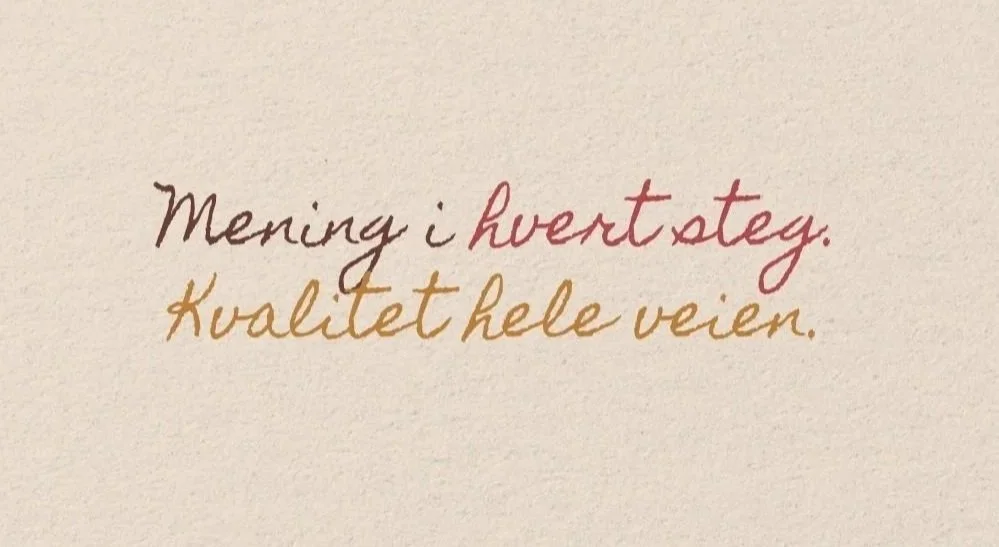 Mening i hvert steg.
Kvalitet hele veien.